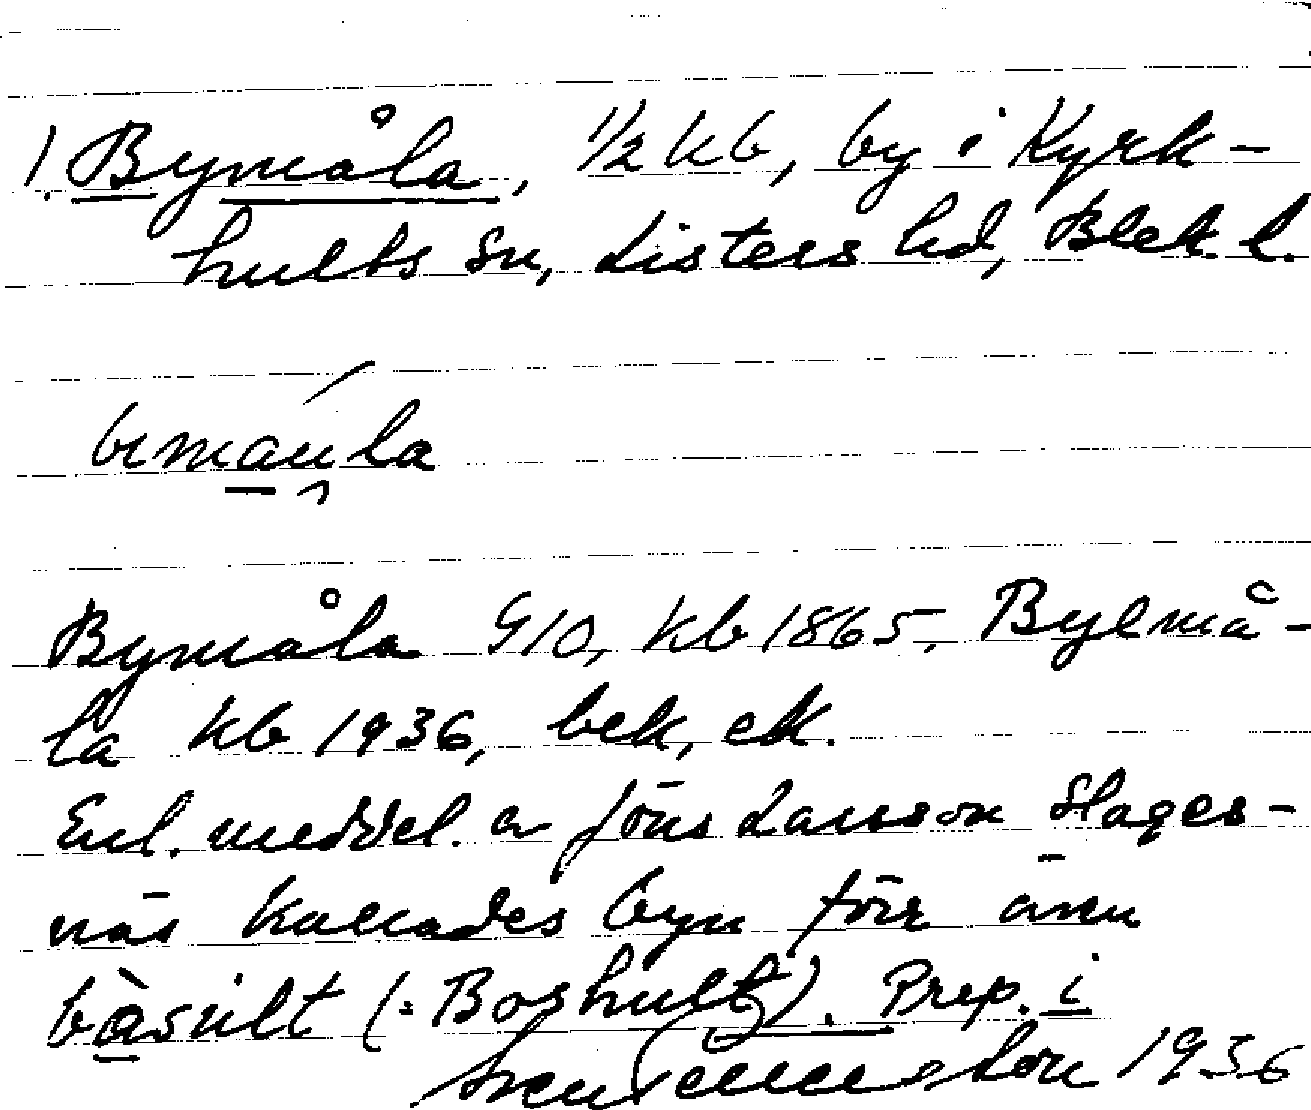 1. Bymåla, 1/2 kb, by i Kyrk-
hults sn, Listers hd, Blek. l.
bymåla G10, kb 1865, Bylmå-
la kb 1936, bek, ek.
Enl. meddel. av Jöns Larsson Slages-
näs kallades byn förr även
basult (: Boshult). Prep. i
Sven 1936